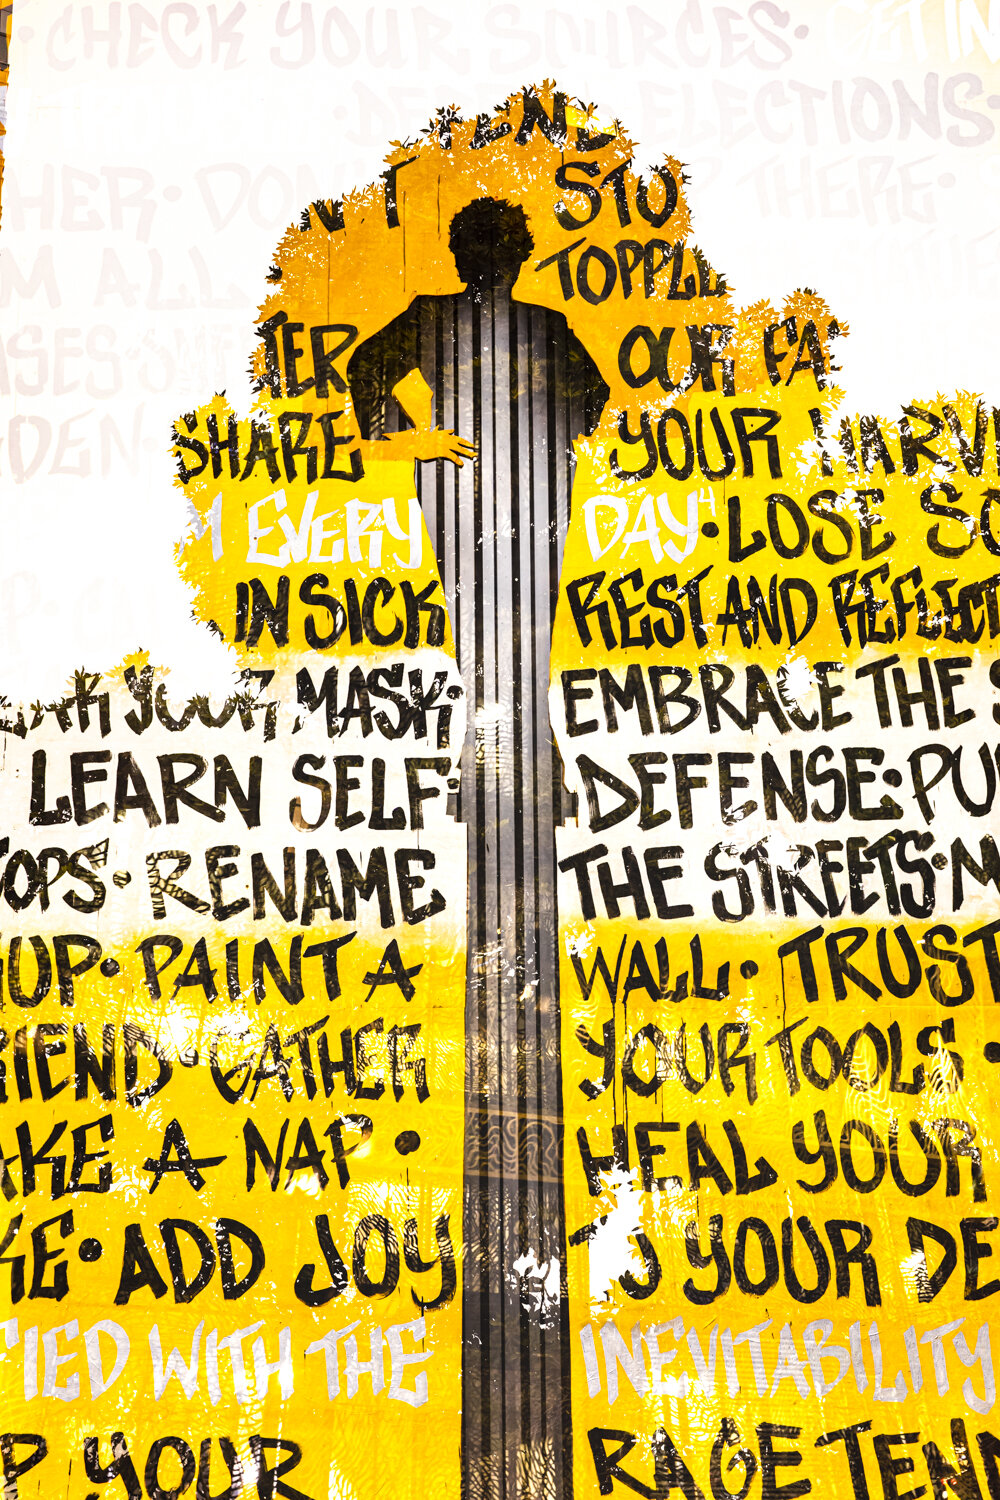 · CHECK YOUR SOURCES · GET IN
ELECTIONS ·
STO
ALL
TER OUR
SHARE YOUR
EVERY DAY · LOSE
IN SICK REST AND REFLECT
YOUR MASK · EMBRACE THE
LEARN SELF · DEFENSE · PU
TOPS · RENAME THE STREETS · M
UP · PAINT A WALL · TRUST
RIEND · GATHER YOUR TOOLS ·
AKE A NAP · HEAL YOUR
KE · ADD JOY TO YOUR DE
FIED WITH THE INEVITABILITY
P YOUR RAGE TEN